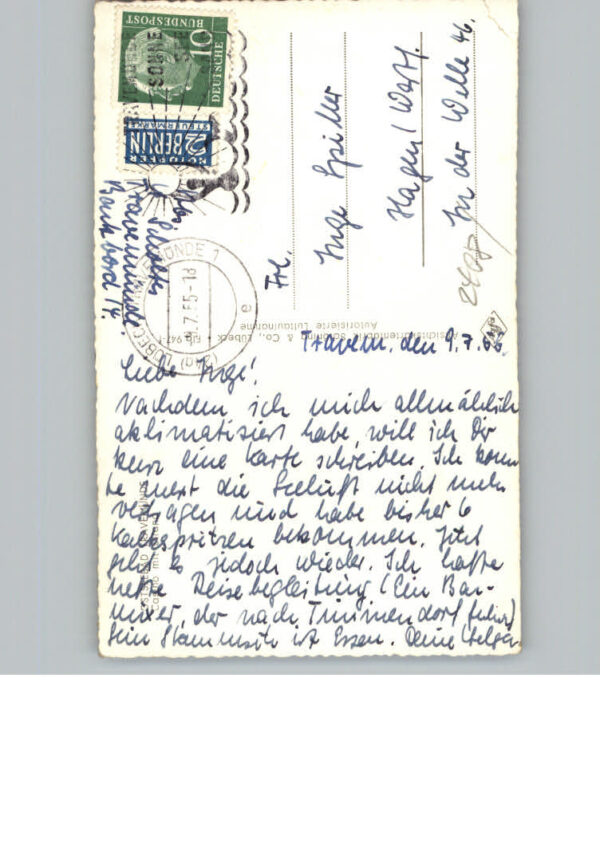 10
DEUTSCHE
BUNDESPOST
NOTOPFER
2 BERLIN
STEUERMARKE
SONNE
LÜBECK-TRAVEMÜNDE 1
9.7.65-18
e
Travemünde
Frl.
Inge Spiller
Hagen (Westf.
In der Welle 46.
Ansichtskartenfabrik Schöning & Co., Lübeck
Autorisierte Luftaufnahme
Travem. den 9.7.
Liebe Inge!
Nachdem ich mich allmählich
aklimatisiert habe, will ich Dir
kurz eine Karte schreiben. Ich konn
te erst die Seeluft nicht mehr
vertragen und habe bisher 6
Kalkspritzen bekommen. Jetzt
geht es jedoch wieder. Ich hatte
nette Reisebegleitung (Ein Bar-
mixer, der nach Timmendorf fuhr)
Sein Stammsitz ist Essen. Deine Helga.